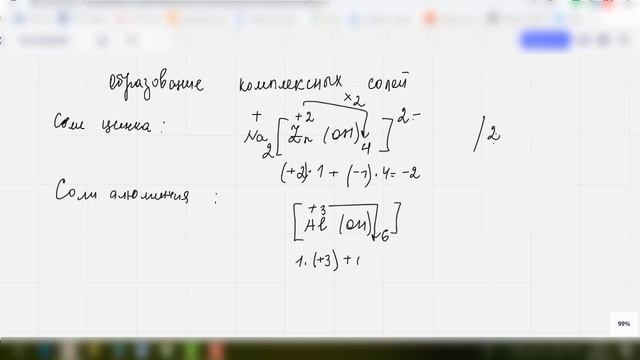 Образование комплексных солей
Соли цинка: Na₂[Zn(OH)₄]²⁻ + +2 ×2 /2
(+2)·1 + (-1)·4 = -2
Соли алюминия :
[Al(OH)₆] +3
1·(+3) + (
99%